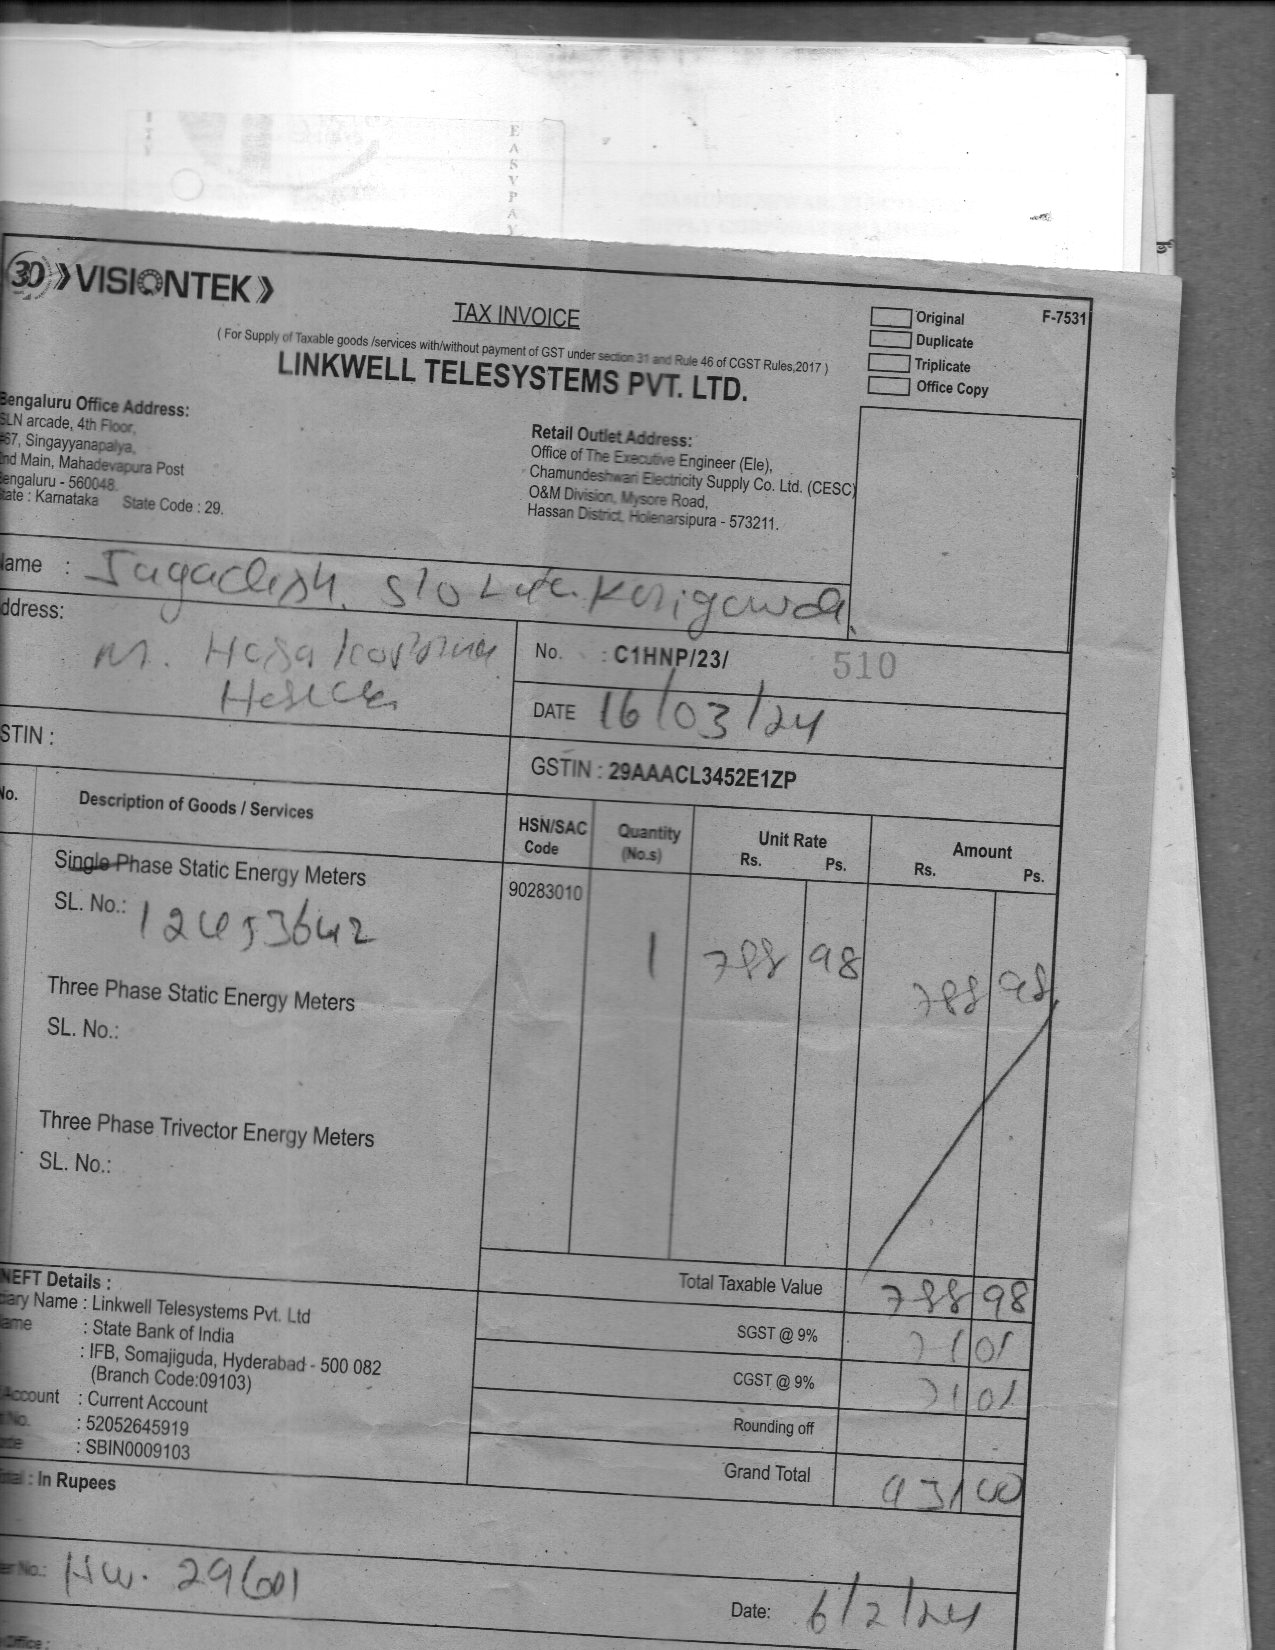 30 VISIONTEK
TAX INVOICE
( For Supply of Taxable goods /services with/without payment of GST under section 31 and Rule 46 of CGST Rules,2017 )
LINKWELL TELESYSTEMS PVT. LTD.
Original
Duplicate
Triplicate
Office Copy
F-7531
Bengaluru Office Address:
SLN arcade, 4th Floor,
#67, Singayyanapalya,
2nd Main, Mahadevapura Post
Bengaluru - 560048.
State : Karnataka State Code : 29.
Retail Outlet Address:
Office of The Executive Engineer (Ele),
Chamundeshwari Electricity Supply Co. Ltd. (CESC)
O&M Division, Mysore Road,
Hassan District, Holenarsipura - 573211.
Name : Jagadish. S/o Late.
Address:
M.
No. : C1HNP/23/ 510
DATE 16/03/24
GSTIN :
GSTIN : 29AAACL3452E1ZP
No. Description of Goods / Services HSN/SAC Code Quantity (No.s) Unit Rate Rs. Ps. Amount Rs. Ps.
Single Phase Static Energy Meters 90283010
SL. No.: 12453642 1 788 98 788 98
Three Phase Static Energy Meters
SL. No.:
Three Phase Trivector Energy Meters
SL. No.:
Total Taxable Value 788 98
SGST @ 9% 71 01
CGST @ 9% 71 01
Rounding off
Grand Total 931 00
NEFT Details :
Name : Linkwell Telesystems Pvt. Ltd
: State Bank of India
: IFB, Somajiguda, Hyderabad - 500 082
(Branch Code:09103)
Account : Current Account
No. : 52052645919
: SBIN0009103
Total : In Rupees
No.: HW. 29601
Date: 6/2/24
Office :
EASYPAY